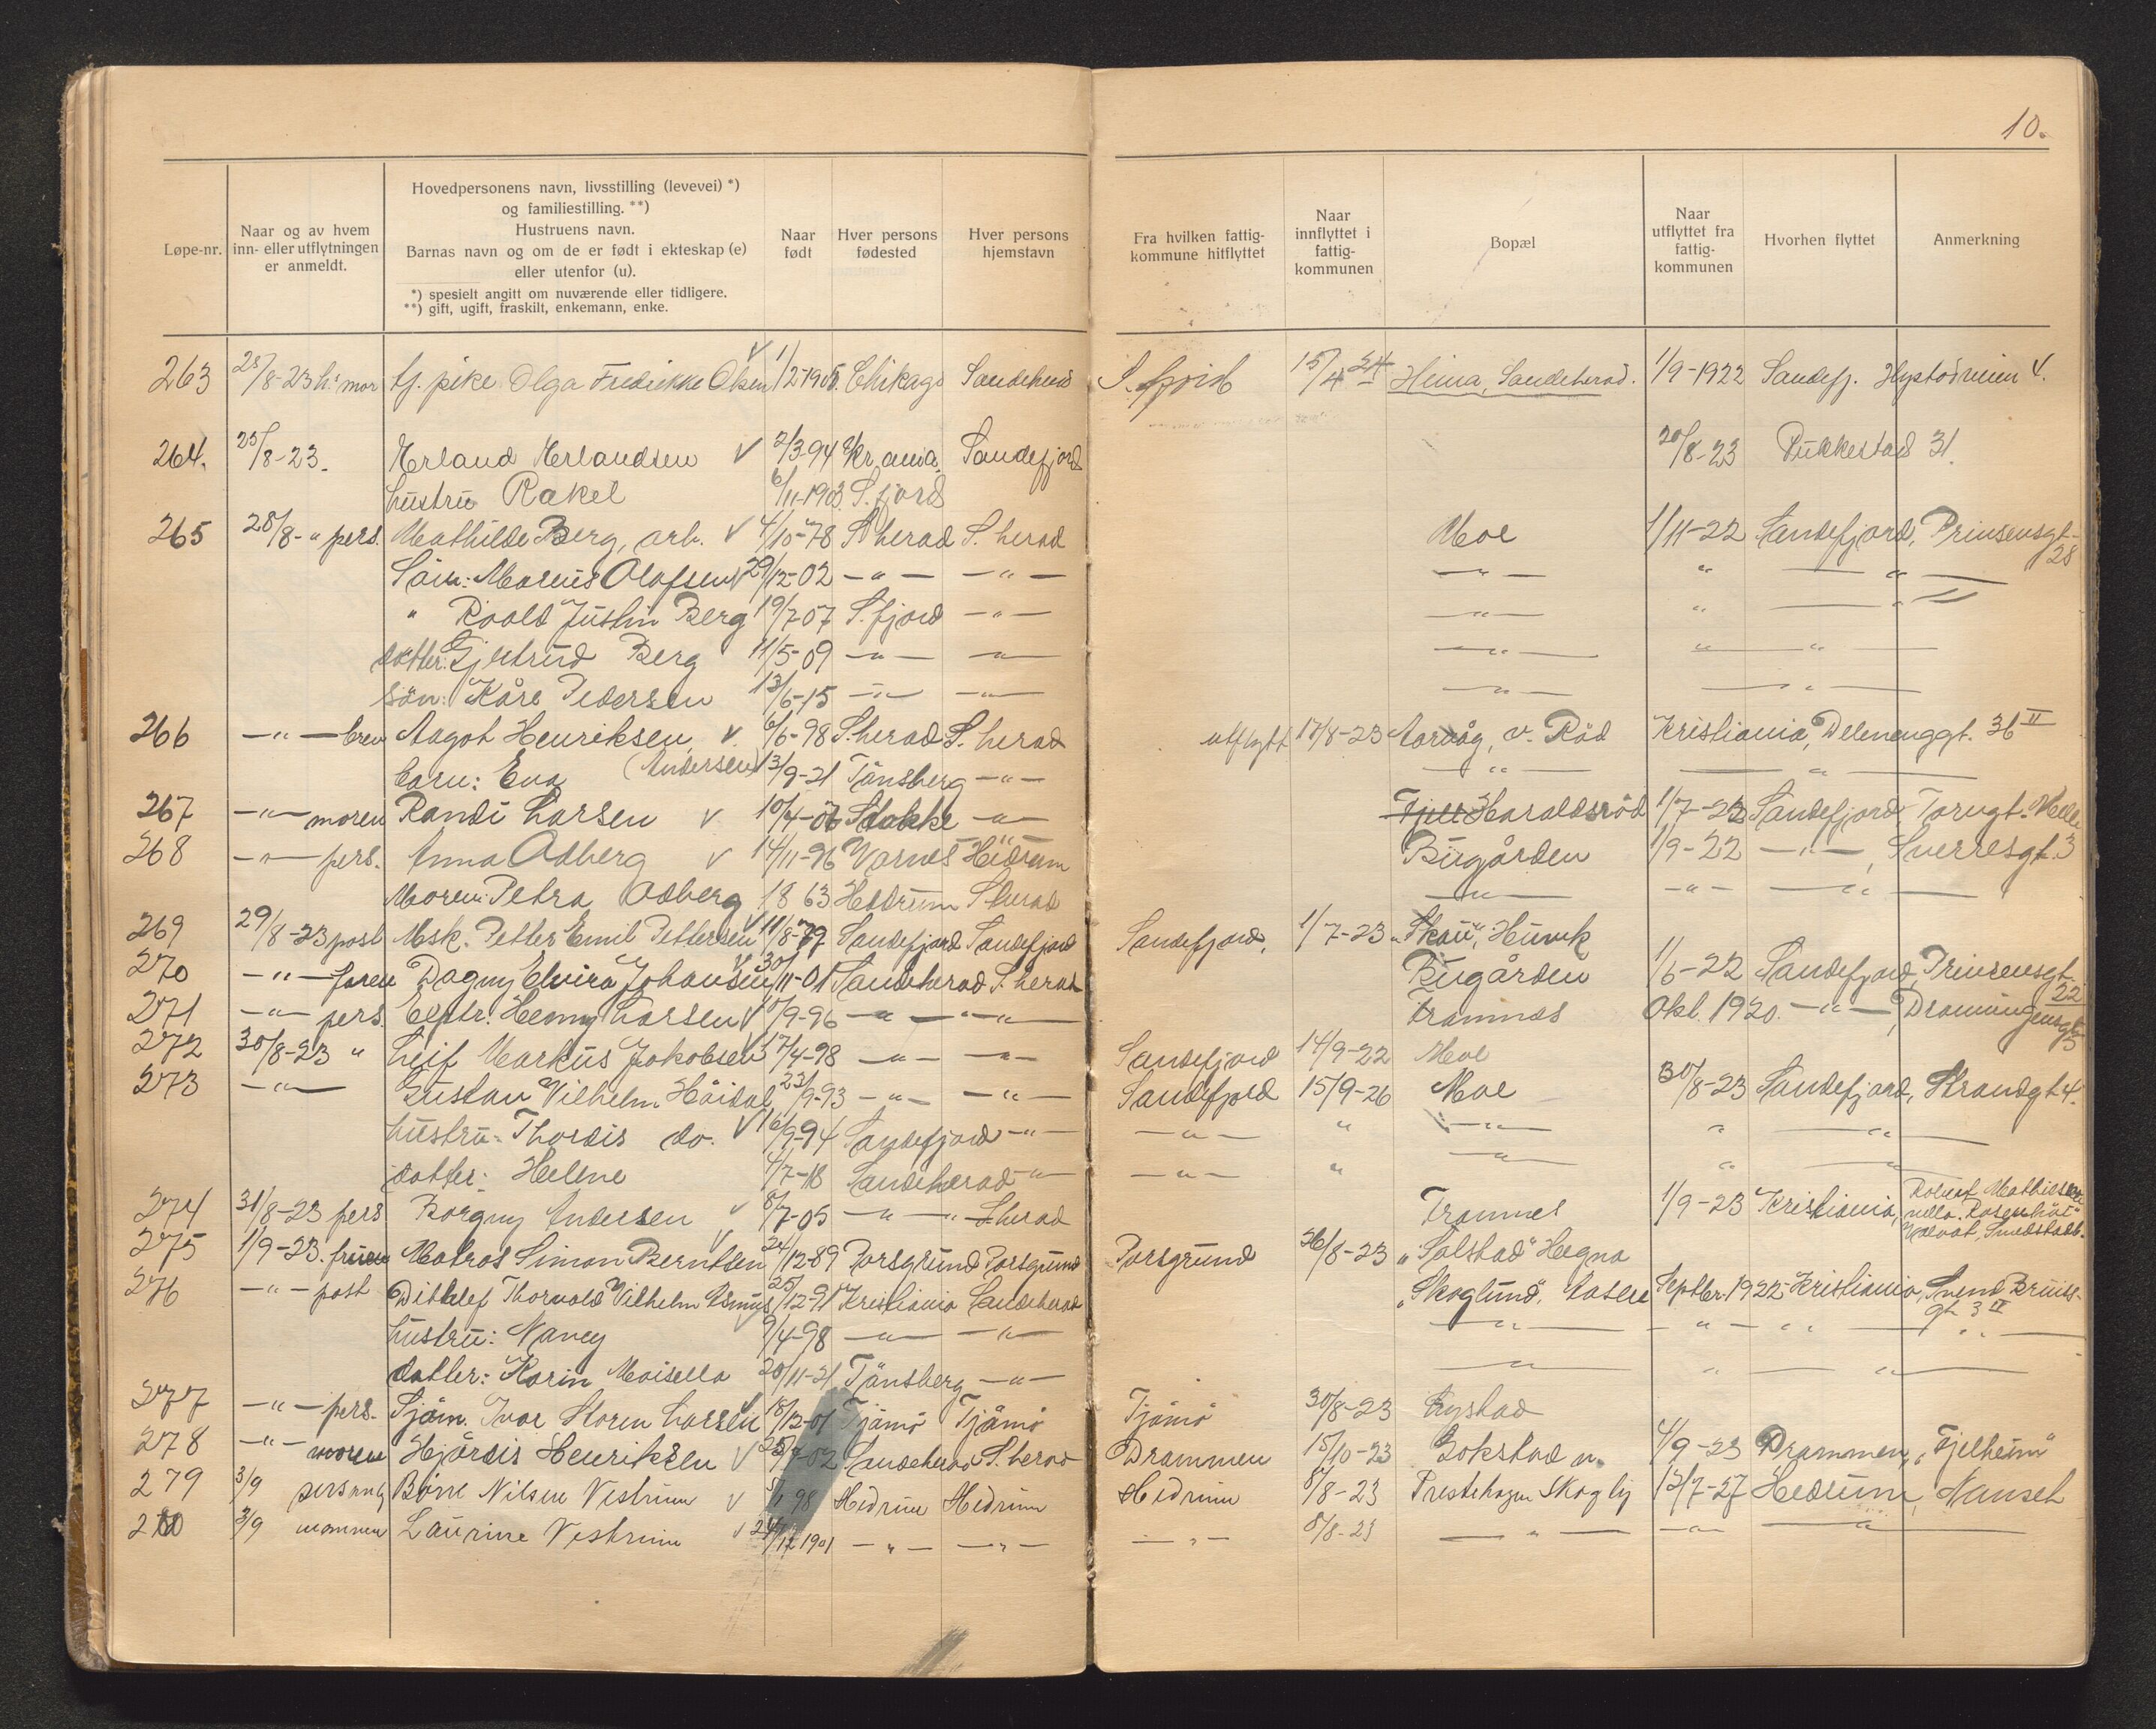 10.
Løpe-nr.
Naar og av hvem
inn- eller utflytningen
er anmeldt.
Hovedpersonens navn, livsstilling (levevei) *)
og familiestilling. **)
Hustruens navn.
Barnas navn og om de er født i ekteskap (e)
eller utenfor (u).
*) spesielt angitt om nuværende eller tidligere.
**) gift, ugift, fraskilt, enkemann, enke.
Naar
født
Hver persons
fødested
Hver persons
hjemstavn
Fra hvilken fattig-
kommune hitflyttet
Naar
innflyttet i
fattig-
kommunen
Bopæl
Naar
utflyttet fra
fattig-
kommunen
Hvorhen flyttet
Anmerkning
263 28/8-23 h. mor tj. pike Olga Fredrikke Olsen 1/2-1905. Chikago Sandeherad S. fjord 15/4 24 Heima, Sandeherad. 1/9-1922 Sandefj. 4.
264. 25/8-23. Erland Erlandsen v 2/3-94 Kr.ania Sandefjord 20/8-23 Pukkestad 31
hustru Rakel 6/11-1903 S.fjord
265 28/8-" pers. Mathilde Berg, arb. v 4/10-78 S herad S. herad Moe 1/11-22 Sandefjord, Prinsensgt. 28
Sön: Marius Olafsen v 29/12-02 -"- -"- -"- " -"-
" Roald Justin Berg 19/7-07 S.fjord -"- -"- " -"-
datter: Gjertrud Berg 11/5-09 -"- -"- -"- " -"-
sön: Kåre Pedersen 13/6-15 -"- -"- -"- -"-
266 -"- brev Aagot Henriksen v 6/6-98 S.herad S. herad utflytt 18/8-23 v. Röd Kristiania, Delenenggt. 36 II
barn: Eva (Andersen) 13/9-21 Tönsberg -"- -"- -"-
267 -"- moren Randi Larsen v 10/4-06 Stokke -"- Haraldsröd 1/7-22 Sandefjord, Torvgt.
268 -"- pers. Anna Adberg v 14/11-96 Hedrum Bugården 1/9-22 -"-, Sverresgt. 3
Moren: Petra Adberg 1863 Hedrum S herad -"- -"- -"-
269 29/8-23 post Msk. Petter Emil Pettersen v 11/8-79 Sandefjord Sandefjord Sandefjord. 1/7-23 "Skau", Hunvk
270 -"- faren Dagny Elvira Johansen v 30/11-01 Sandeherad S.herad Bugården 1/6-22 Sandefjord, Prinsensgt. 22
271 -"- pers. Henny Larsen v 10/9-96 -"- -"- Framnæs Okt. 1920. -"-, Dronningensgt. 5
272 30/8-23 " Leif Markus Jakobsen 17/4-98 -"- -"- Sandefjord 14/9-22 Moe
273 -"- Gustav Vilhelm Höidal 23/9-93 -"- -"- Sandefjord 15/9-26 Moe 30/8-23 Sandefjord, Strandgt 4.
hustru: Thordis do. v 16/9-94 Sandefjord -"- -"- " -"- " -"-
datter: Helene 4/7-18 Sandeherad -"- -"- " -"- " -"-
274 31/8-23 pers Borgny Andersen v 8/7-05 -"- S herad Framnes 1/9-23 Kristiania,
275 1/9-23. fruen Matros Simon Berntsen v 24/12-89 Porsgrund Porsgrund Porsgrund 26/8-23 "Solstad" Hegna
276 -"- post Ditlef Thorvald Vilhelm Asmus 25/12-91 Kristiania Sandeherad "Skoglund", Aasen Septbr. 1922 Kristiania, Svend Bruns-
gt. 3 II
hustru: Nancy 9/4-98 -"- -"- -"- -"- -"-
datter: Karin Maisella 20/11-21 Tönsberg -"- -"- " -"-
277 -"- pers. Sjöm. Ivar Storen Larsen v 18/12-01 Tjömö Tjömö Tjömö 30/8-23 Nystad
278 -"- moren Hjördis Henriksen v 02 Sandeherad S. herad Drammen 15/10-23 Gokstad n. 4/9-23 Drammen, "Fjelheim"
279 3/9 personlig Börre Nilsen Vestrum v 98 Hedrum Hedrum Hedrum 8/8-23 Prestehagen Skogly 13/7-27 Hedrum, Nanset
280 3/9 mannen Laurine Vestrum v 24/12 1901 -"- -"- -"- 8/8-23 -"- -"- -"-